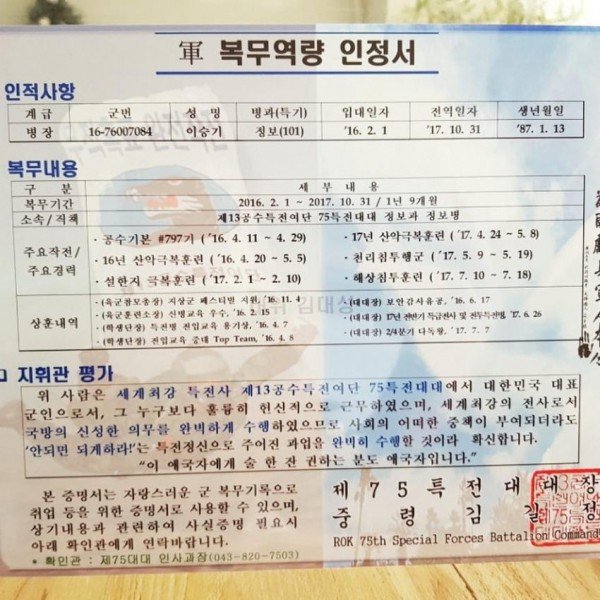 軍 복무역량 인정서
인적사항
계 급 군번 성 명 병과(특기) 입대일자 전역일자 생년월일
병장 16-76007084 이승기 정보(101) '16. 2. 1 '17. 10. 31 '87. 1. 13
복무내용
구 분 세 부 내 용
복무기간 2016. 2. 1 ~ 2017. 10. 31 / 1년 9개월
소속/직책 제13공수특전여단 75특전대대 정보과 정보병
주요작전/주요경력
· 공수기본 #797기 ('16. 4. 11 ~ 4. 29) · 17년 산악극복훈련 ('17. 4. 24 ~ 5. 8)
· 16년 산악극복훈련 ('16. 4. 20 ~ 5. 5) · 천리침투행군 ('17. 5. 9 ~ 5. 19)
· 설한지 극복훈련 ('17. 2. 1 ~ 2. 10) · 해상침투훈련 ('17. 7. 10 ~ 7. 18)
상훈내역
· (육군참모총장) 지상군 페스티벌 지원, '16. 11. 4 · (대대장) 보안감사유공, '16. 6. 17
· (육군훈련소장) 신병교육 우수, '16. 2. 15 · (대대장) 17년 전반기 특급전사 및 전투특전병, '17. 6. 26
· (학생단장) 특전병 전입교육 용기상, '16. 4. 7 · (대대장) 2/4분기 다독왕, '17. 7. 7
· (학생단장) 전입교육 중대 Top Team, '16. 4. 8
지휘관 평가
위 사람은 세계최강 특전사 제13공수특전여단 75특전대대에서 대한민국 대표
군인으로서, 그 누구보다 훌륭히 헌신적으로 근무하였으며, 세계최강의 전사로서
국방의 신성한 의무를 완벽하게 수행하였으므로 사회의 어떠한 중책이 부여되더라도
'안되면 되게하라!'는 특전정신으로 주어진 과업을 완벽히 수행할 것이라 확신합니다.
"이 애국자에게 술 한 잔 권하는 분도 애국자입니다."
본 증명서는 자랑스러운 군 복무기록으로
취업 등을 위한 증명서로 사용할 수 있으며,
상기내용과 관련하여 사실증명 필요시
아래 확인관에게 연락바랍니다.
* 확인관 : 제75대대 인사과장(043-820-7503)
제 7 5 특 전 대 대 장
중 령 김 길 정
ROK 75th Special Forces Battalion Command